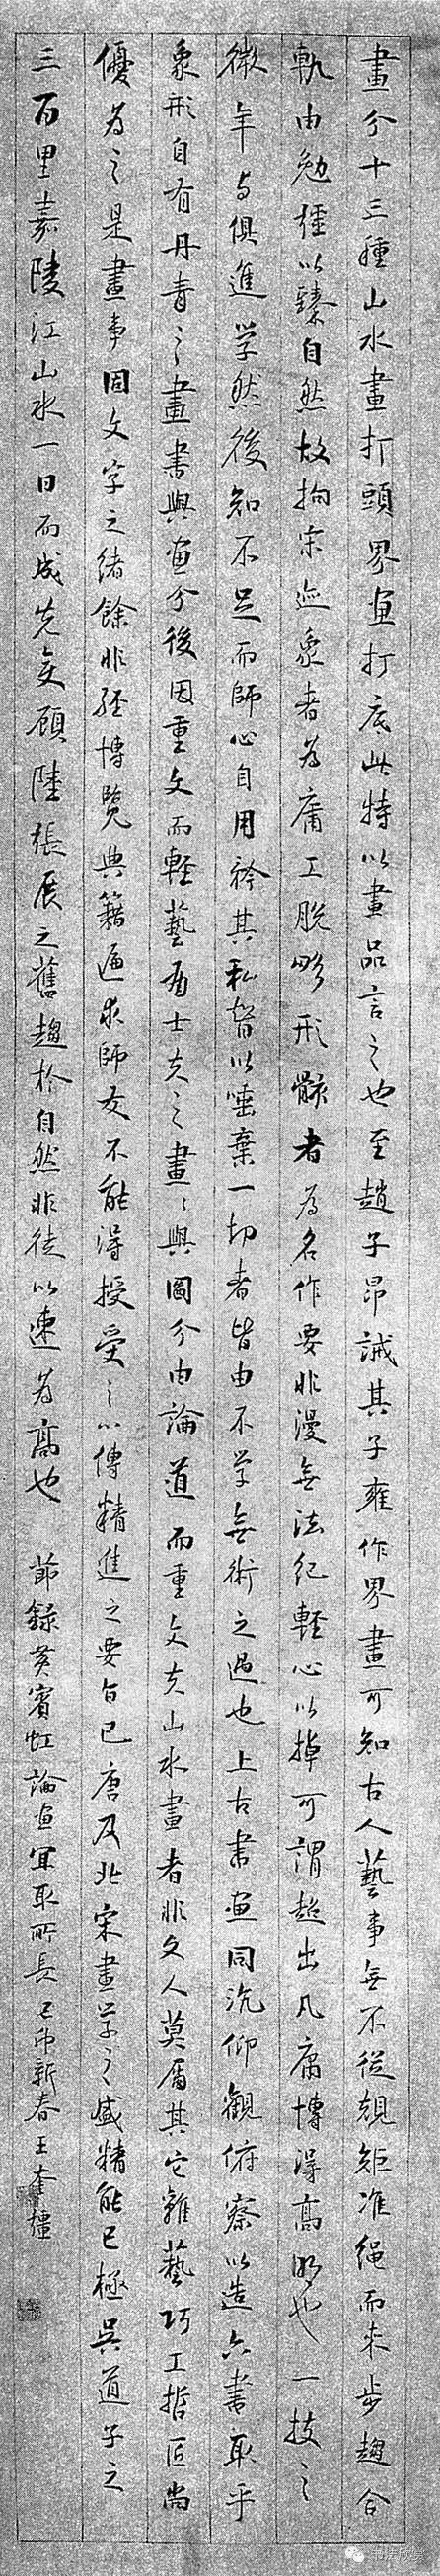 畫分十三種山水畫打頭界畫打底此特以畫品言之也至趙子昂誡其子雍作界畫可知古人藝事無不從規矩準繩而來步趨合
軌由勉彊以臻自然故拘宗迹象者為庸工脫略形骸者為名作要非漫無法紀輕心以掉可謂超出凡庸博得高明也一技之
微年与俱進学然後知不足而師心自用矜其私智以唾棄一切者皆由不学無術之過也上古書画同流仰觀俯察以造六書取乎
象形自有丹青之畫書與画分後因重文而輕藝有士夫之畫畫與圖分由論道而重文夫山水畫者非文人莫屬其它雜藝巧工哲匠尚
優為之是畫事固文字之緒餘非經博覽典籍遍求師友不能得授受之心傳精進之要旨已唐及北宋畫学之盛精能已極吳道子之
三百里嘉陵江山水一日而成先变顧陸張展之舊趨於自然非徒以速為高也 節錄黃賓虹論画宜取所長 己卯新春王奎